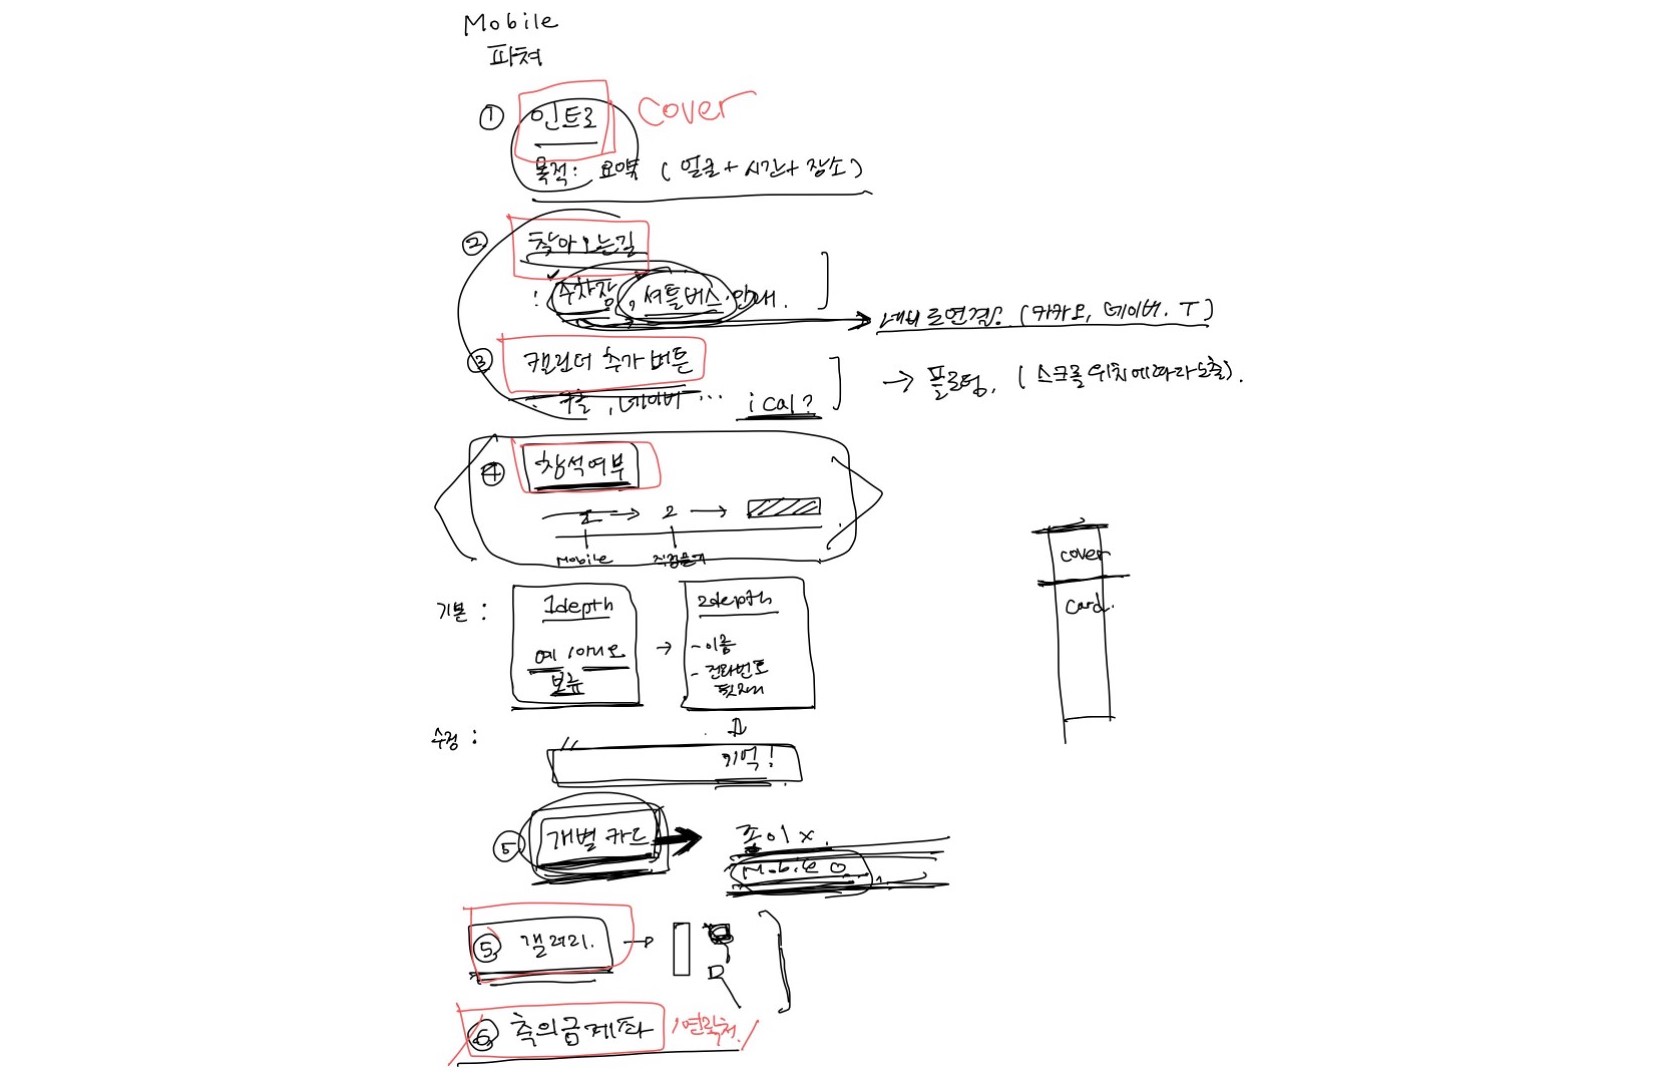 Mobile
피쳐
① 인트로 cover
목적: 요약 (얼굴+시간+장소)
② 찾아오는길
: 주차장, 셔틀버스 안내.
네비로연결. (카카오, 네이버. T)
③ 캘린더 추가 버튼
: 구글, 네이버 ... ical?
→ 플로팅. (스크롤 위치에따라 노출).
④ 참석여부
1 → 2 →
Mobile
기본 :
1depth
예 / 아니오
보류
→
2depth
- 이름
- 전화번호
뒷자리
cover
card.
수정 :
기억!
⑤ 개별 카드 → 종이 x.
Mobile O
⑤ 갤러리. →
⑥ 축의금계좌 / 연락처 /